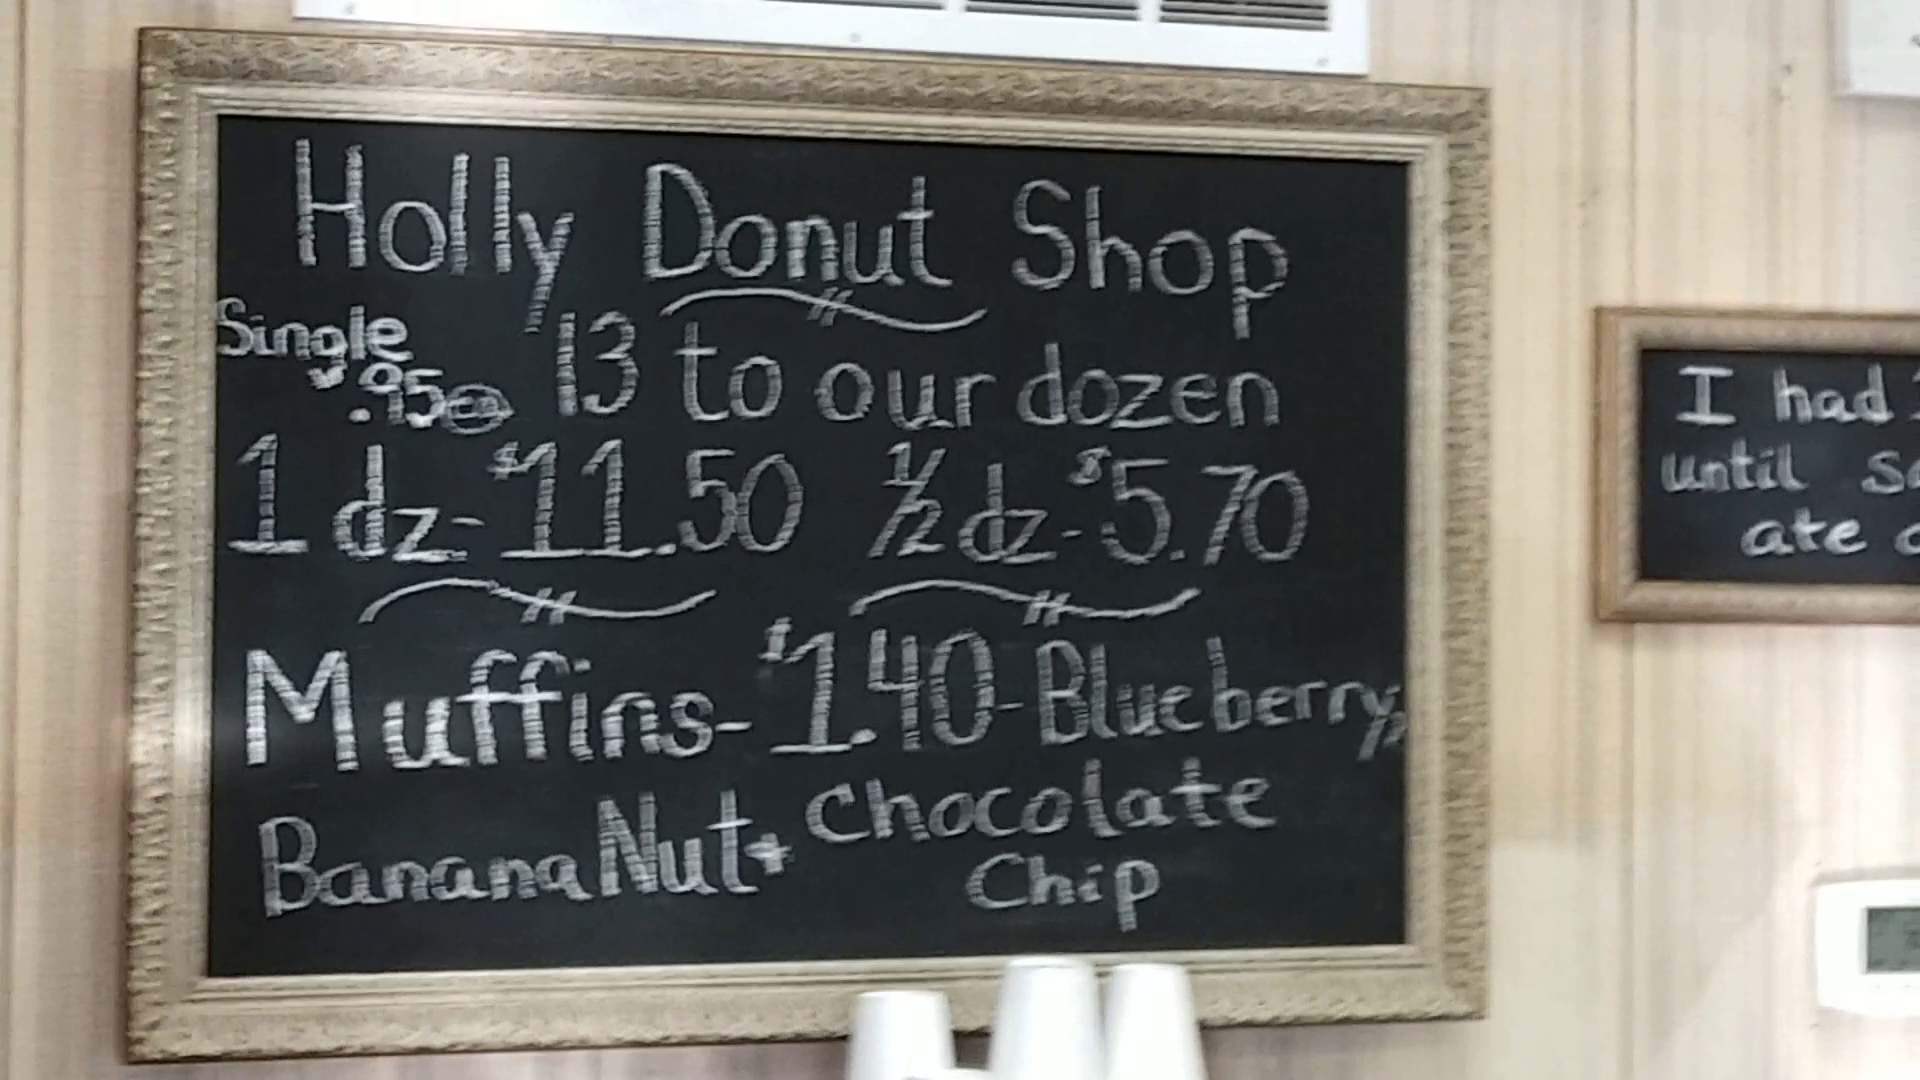 Holly Donut Shop
Single
.95 ea 13 to our dozen
1 dz- $11.50 ½ dz- $5.70
Muffins- $1.40- Blueberry,
Banana Nut + Chocolate
Chip
I had
until
ate